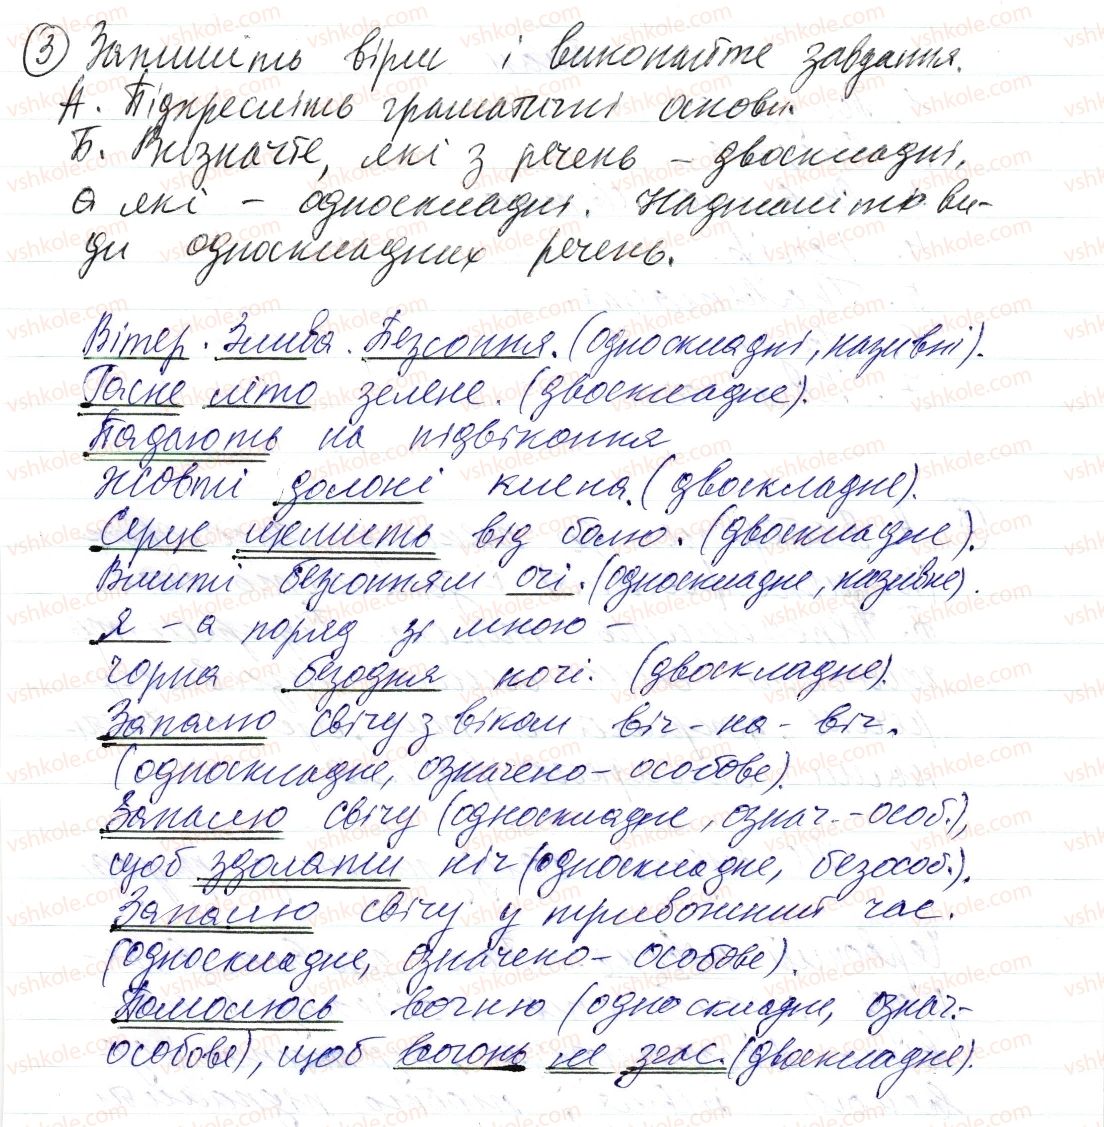 3 Запишіть вірш і виконайте завдання.
А. Підкресліть граматичні основи.
Б. Визначте, які з речень – двоскладні,
а які – односкладні. Надпишіть ви-
ди односкладних речень.
Вітер. Злива. Безсоння. (односкладні, називні).
Гасне літо зелене. (двоскладне).
Падають на підвіконня
жовті долоні клена. (двоскладне).
Серце щемить від болю. (двоскладне).
Вмиті безсонням очі. (односкладне, називне).
Я – а поряд зі мною –
чорна безодня ночі. (двоскладне).
Запалю свічу з віком віч-на-віч.
(односкладне, означено-особове).
Запалю свічу (односкладне, означ.-особ.),
щоб здолати ніч (односкладне, безособ.).
Запалю свічу у тривожний час.
(односкладне, означено-особове).
Помолюсь вогню (односкладне, означ.-
особове), щоб вогонь не згас. (двоскладне).